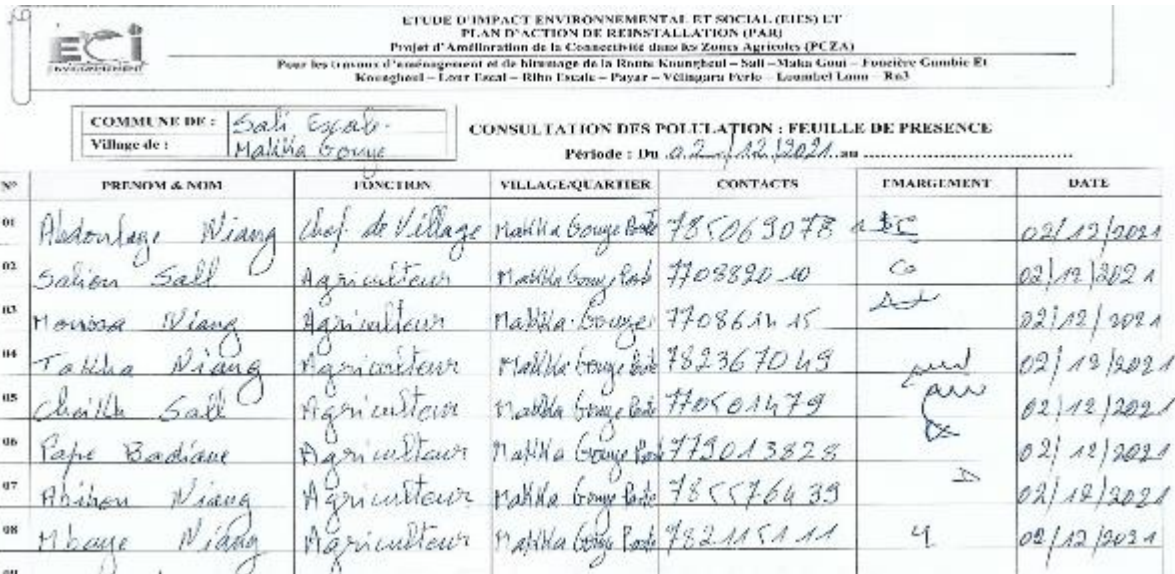 ECI
ENVIRONNEMENT
ETUDE D'IMPACT ENVIRONNEMENTAL ET SOCIAL (EIES) ET
PLAN D'ACTION DE REINSTALLATION (PAR)
Projet d'Amélioration de la Connectivité dans les Zones Agricoles (PCZA)
Pour les travaux d'aménagement et de bitumage de la Route Koungheul – Sali – Maka Goui – Foncière Gambie Et
Koungheul – Lour Escal – Ribo Escale – Payar – Vélingara Ferlo – Loumbel Lana – Rn3
COMMUNE DE : Sali Escale
Village de : Makka Gouye
CONSULTATION DES POLULATION : FEUILLE DE PRESENCE
Période : Du 02/12/2021 au
N° PRENOM & NOM FONCTION VILLAGE/QUARTIER CONTACTS EMARGEMENT DATE
01 Abdoulaye Niang Chef de Village Makka Gouye 785069078 02/12/2021
02 Saliou Sall Agriculteur Makka Gouye 770882010 02/12/2021
03 Moussa Niang Agriculteur Makka Gouye 02/12/2021
04 Niang Agriculteur Makka Gouye 782367049 02/12/2021
05 Cheikh Sall Agriculteur Makka Gouye 770501479 02/12/2021
06 Pape Badiane Agriculteur Makka Gouye 779013828 02/12/2021
07 Abibou Niang Agriculteur Makka Gouye 785576439 02/12/2021
08 Mbaye Niang Agriculteur Makka Gouye 782115111 02/12/2021